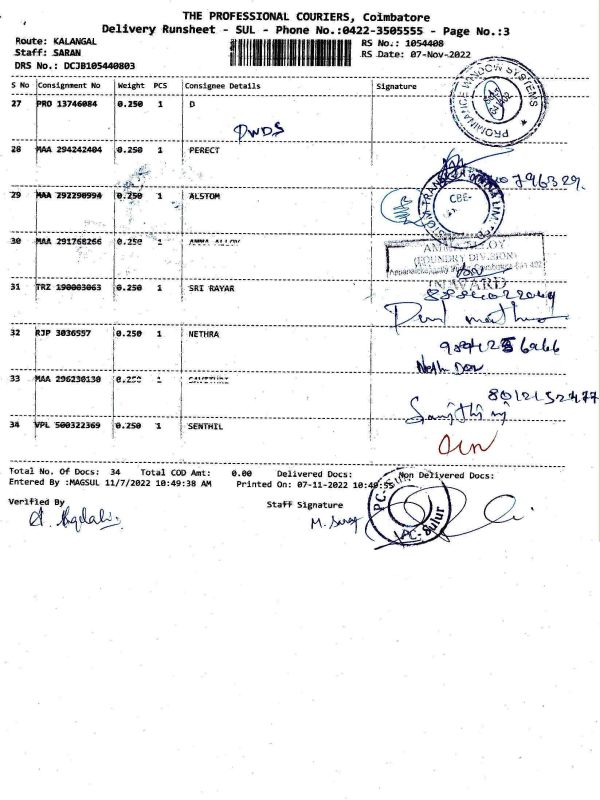 THE PROFESSIONAL COURIERS, Coimbatore
Delivery Runsheet - SUL - Phone No.:0422-3505555 - Page No.:3
Route: KALANGAL
Staff: SARAN
DRS No.: DCJB105440803
RS No.: 1054408
RS Date: 07-Nov-2022
S No Consignment No Weight PCS Consignee Details Signature
27 PRO 13746084 0.250 1 D
PROMINANCE WINDOW SYSTEMS
DWDS
28 MAA 294242404 0.250 1 PERECT
796329
29 MAA 292290994 0.250 1 ALSTOM
CBE-
30 MAA 291768266 0.250 1 ANNA ALLOY
(FOUNDRY DIVISION)
INWARD
31 TRZ 190003063 0.250 1 SRI RAYAR
32 RJP 3036557 0.250 1 NETHRA
33 MAA 296230130 0.250 1
8012152477
34 VPL 500322369 0.250 1 SENTHIL
Total No. Of Docs: 34 Total COD Amt: 0.00 Delivered Docs: Non Delivered Docs:
Entered By :MAGSUL 11/7/2022 10:49:38 AM Printed On: 07-11-2022 10:49:55
Verified By
Staff Signature
PC-Sulur
PC-Sulur